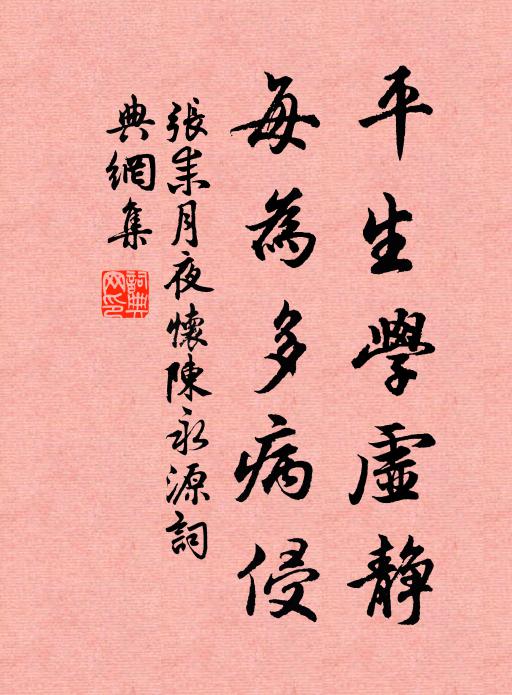 平生學虛静
每為多病侵
張耒月夜懷陳永源詞
典網集
詞典網印